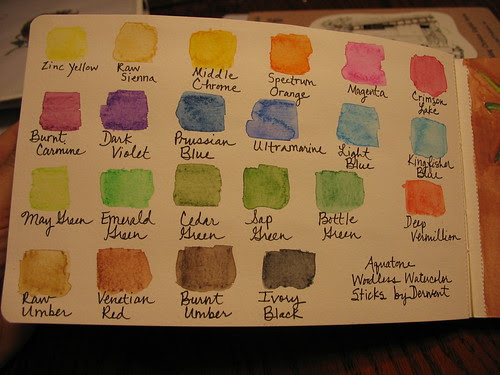 Zinc Yellow
Raw
Sienna
Middle
Chrome
Spectrum
Orange
Magenta
Crimson
Lake
Burnt
Carmine
Dark
Violet
Prussian
Blue
Ultramarine
Light
Blue
Kingfisher
Blue
May Green
Emerald
Green
Cedar
Green
Sap
Green
Bottle
Green
Deep
Vermillion
Raw
Umber
Venetian
Red
Burnt
Umber
Ivory
Black
Aquatone
Woodless Watercolor
Sticks by Derwent